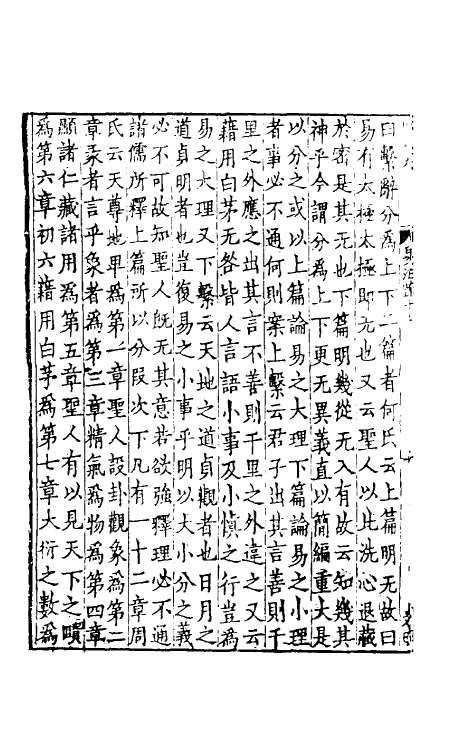 曰繫辭分爲上下二篇者何氏云上篇明无故曰
易有太極太極即无也又云聖人以此洗心退藏
於密是其无也下篇明幾從无入有故云知幾其
神乎今謂分爲上下更无異義直以簡編重大是
以分之或以上篇論易之大理下篇論易之小理
者事必不通何則案上繫云君子出其言善則千
里之外應之出其言不善則千里之外違之又云
藉用白茅无咎皆人言語小事及小慎之行豈爲
易之大理又下繫云天地之道貞觀者也日月之
道貞明者也豈復易之小事乎明以大小分之義
必不可故知聖人旣无其意若欲強釋理必不通
諸儒所釋上篇所以分段次下凡有一十二章周
氏云天尊地卑爲第一章聖人設卦觀象爲第二
章彖者言乎象者爲第三章精氣爲物爲第四章
顯諸仁藏諸用爲第五章聖人有以見天下之賾
爲第六章初六藉用白茅爲第七章大衍之數爲